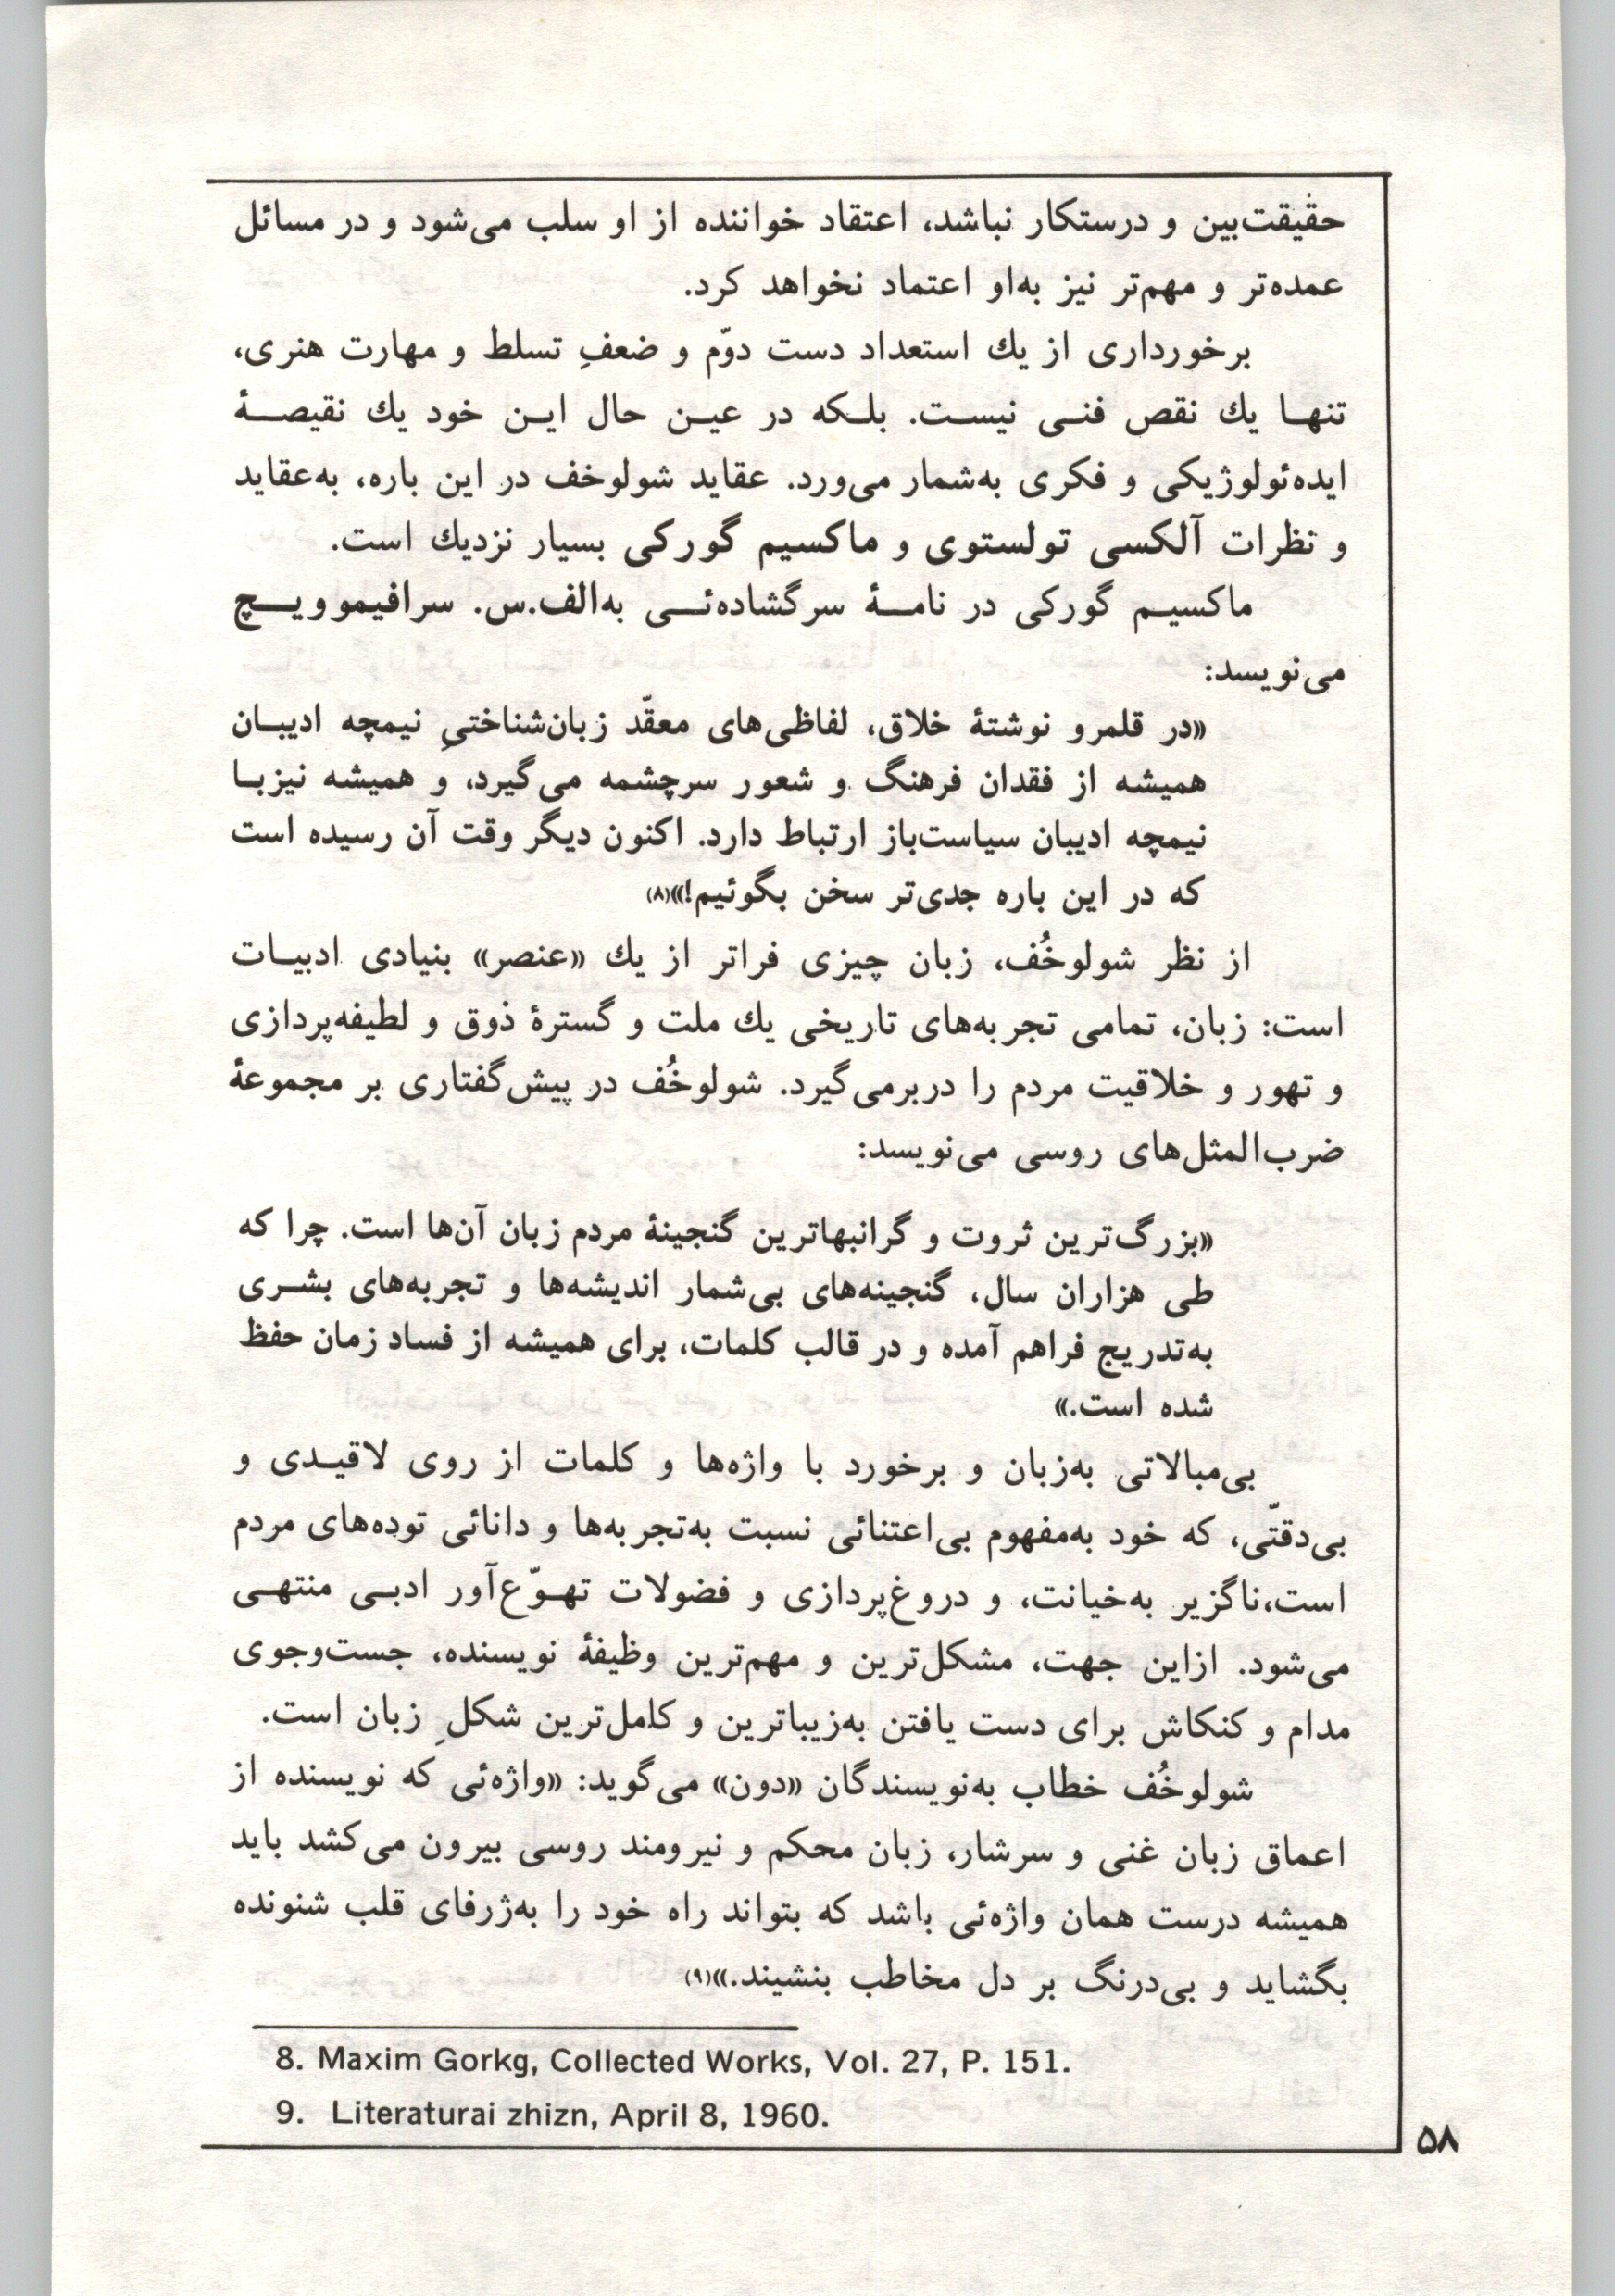 حقیقت‌بین و درستکار نباشد، اعتقاد خواننده از او سلب می‌شود و در مسائل
عمده‌تر و مهم‌تر نیز به‌او اعتماد نخواهد کرد.
برخورداری از یك استعداد دست دوّم و ضعفِ تسلط و مهارت هنری،
تنهـا یك نقص فنـی نیسـت. بلـکه در عیـن حال ایـن خود یك نقیصـۀ
ایده‌ئولوژیکی و فکری به‌شمار می‌ورد. عقاید شولوخف در این باره، به‌عقاید
و نظرات آلکسی تولستوی و ماکسیم گورکی بسیار نزدیك است.
ماکسیـم گورکی در نامـۀ سرگشاده‌ئـی به‌الف.س. سرافیموویـچ
می‌نویسد:
«در قلمرو نوشتۀ خلاق، لفاظی‌های معقّد زبان‌شناختیِ نیمچه ادیبـان
همیشه از فقدان فرهنگ و شعور سرچشمه می‌گیرد، و همیشه نیزبـا
نیمچه ادیبان سیاست‌باز ارتباط دارد. اکنون دیگر وقت آن رسیده است
که در این باره جدی‌تر سخن بگوئیم!»(۸)
از نظر شولوخُف، زبان چیزی فراتر از یك «عنصر» بنیادی ادبیـات
است: زبان، تمامی تجربه‌های تاریخی یك ملت و گسترۀ ذوق و لطیفه‌پردازی
و تهور و خلاقیت مردم را دربرمی‌گیرد. شولوخُف در پیش‌گفتاری بر مجموعۀ
ضرب‌المثل‌های روسی می‌نویسد:
«بزرگ‌ترین ثروت و گرانبهاترین گنجینۀ مردم زبان آن‌ها است. چرا که
طی هزاران سال، گنجینه‌های بی‌شمار اندیشه‌ها و تجربه‌های بشـری
به‌تدریج فراهم آمده و در قالب کلمات، برای همیشه از فساد زمان حفظ
شده است.»
بی‌مبالاتی به‌زبان و برخورد با واژه‌ها و کلمات از روی لاقیـدی و
بی‌دقتّی، که خود به‌مفهوم بی‌اعتنائی نسبت به‌تجربه‌ها و دانائی توده‌های مردم
است،ناگزیر به‌خیانت، و دروغ‌پردازی و فضولات تهـوّع‌آور ادبـی منتهـی
می‌شود. ازاین جهت، مشکل‌ترین و مهم‌ترین وظیفۀ نویسنده، جست‌وجوی
مدام و کنکاش برای دست یافتن به‌زیباترین و کامل‌ترین شکلِ زبان است.
شولوخُف خطاب به‌نویسندگان «دون» می‌گوید: «واژه‌ئی که نویسنده از
اعماق زبان غنی و سرشار، زبان محکم و نیرومند روسی بیرون می‌کشد باید
همیشه درست همان واژه‌ئی باشد که بتواند راه خود را به‌ژرفای قلب شنونده
بگشاید و بی‌درنگ بر دل مخاطب بنشیند.»(۹)
8. Maxim Gorkg, Collected Works, Vol. 27, P. 151.
9. Literaturai zhizn, April 8, 1960.
۵۸